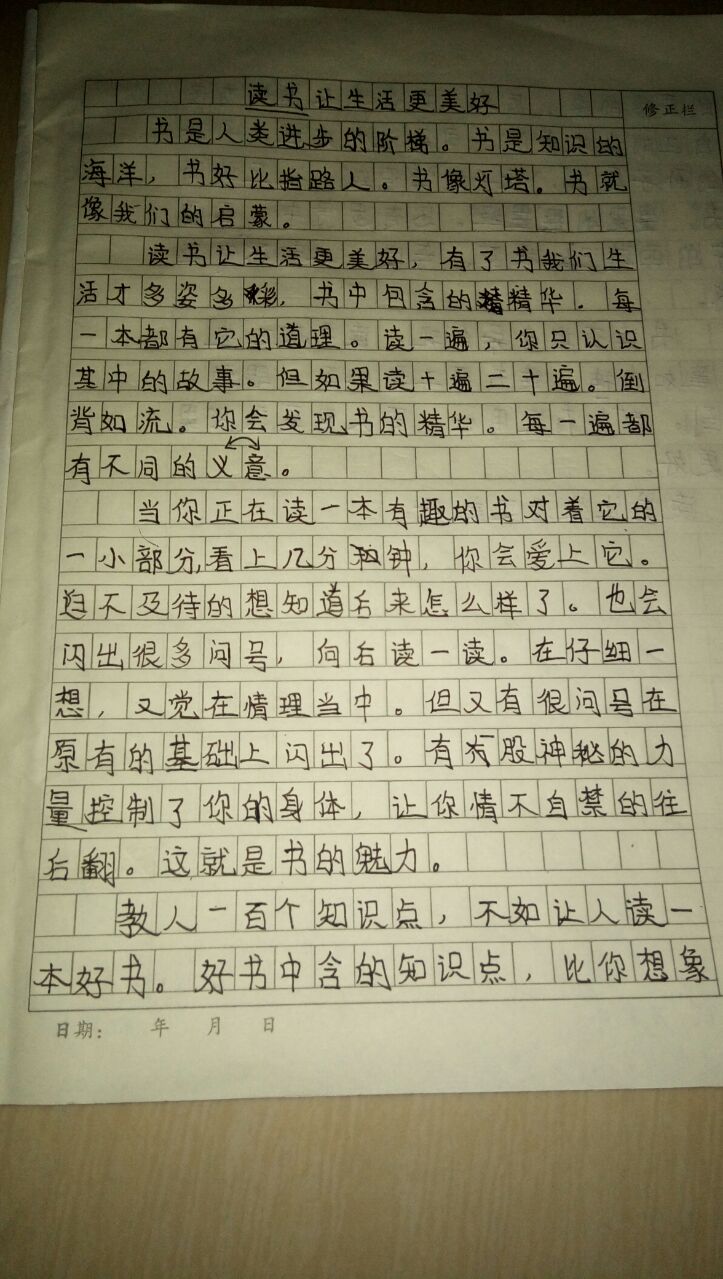 读书让生活更美好
修正栏
书是人类进步的阶梯。书是知识的
海洋，书好比指路人。书像灯塔。书就
像我们的启蒙。
读书让生活更美好，有了书我们生
活才多姿多彩，书中包含的精华．每
一本都有它的道理。读一遍，你只认识
其中的故事。但如果读十遍二十遍。倒
背如流。你会发现书的精华。每一遍都
有不同的义意。
当你正在读一本有趣的书对着它的
一小部分，看上几分钟，你会爱上它。
迫不及待的想知道后来怎么样了。也会
闪出很多问号，向后读一读。在仔细一
想，又觉在情理当中。但又有很问号在
原有的基础上闪出了。有股神秘的力
量控制了你的身体，让你情不自禁的往
后翻。这就是书的魅力。
教人一百个知识点，不如让人读一
本好书。好书中含的知识点，比你想象
日期： 年 月 日